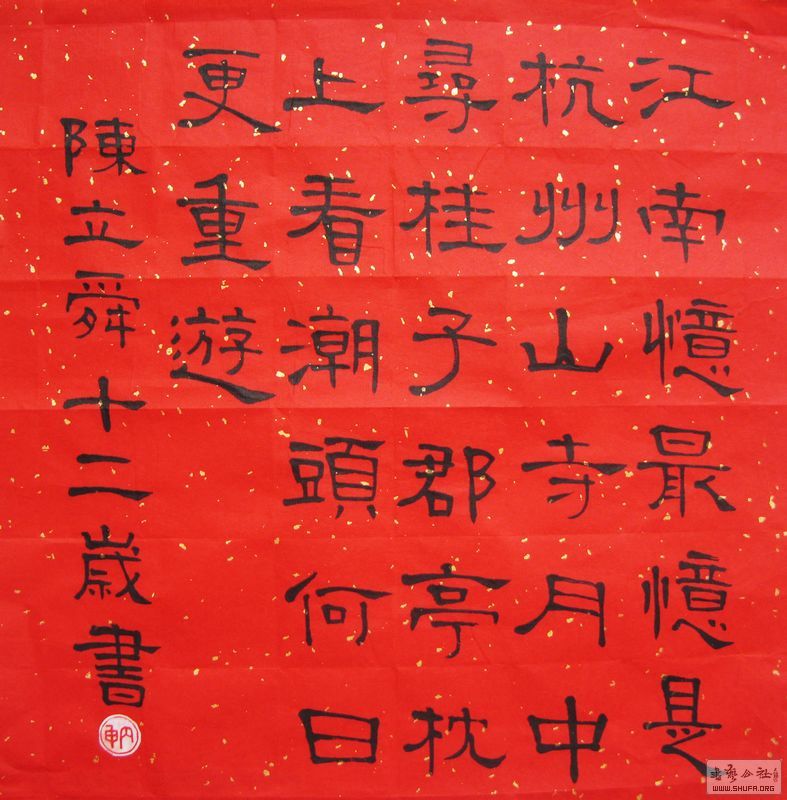 江南憶最憶是
杭州山寺月中
尋桂子郡亭枕
上看潮頭何日
更重遊
陳立舜十二歲書
WWW.SHUFA.ORG